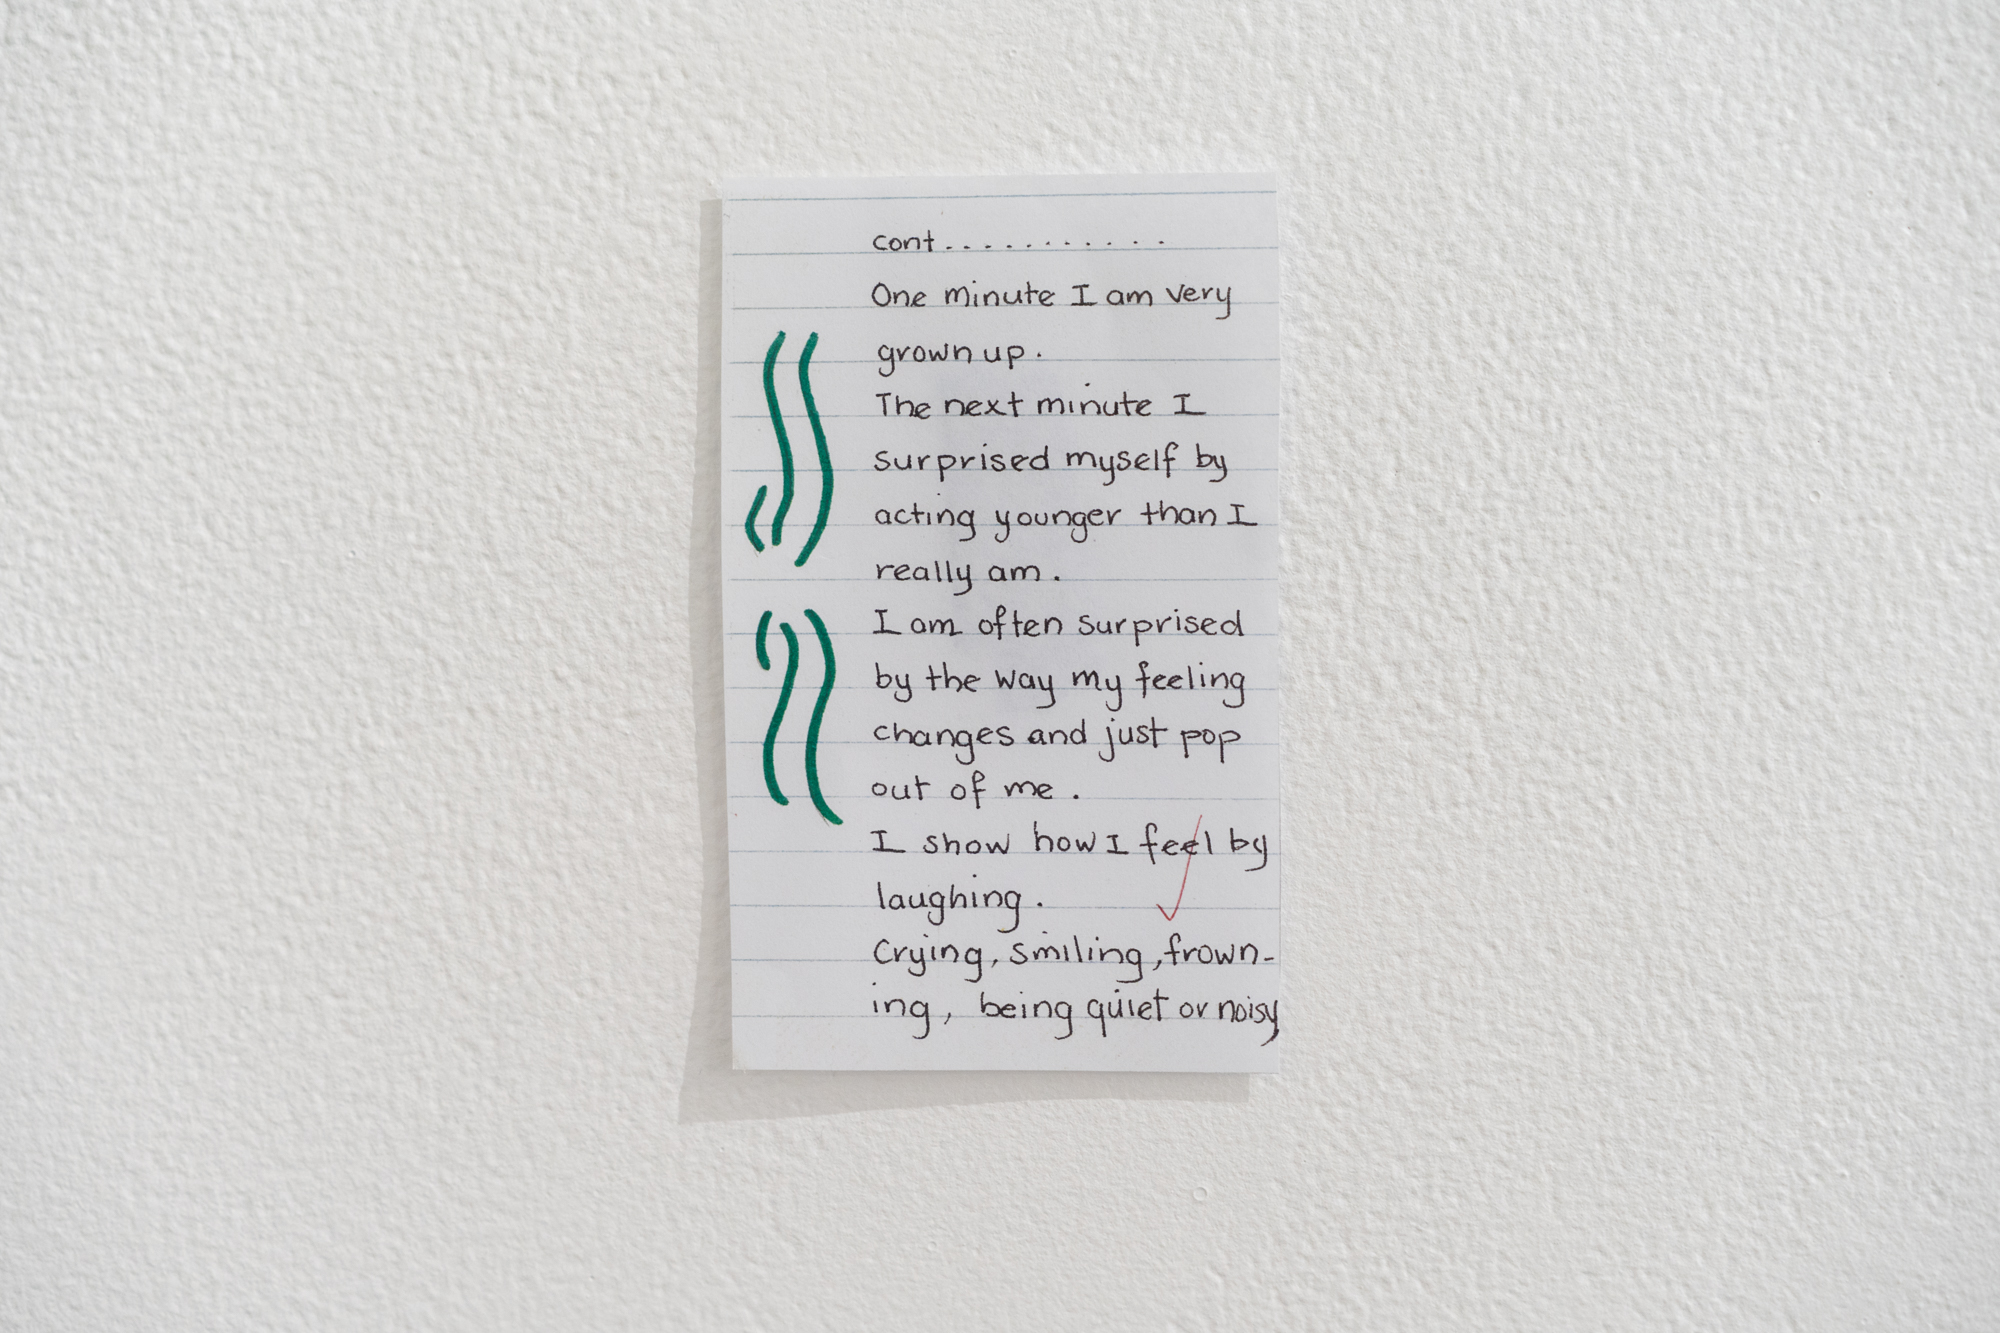 cont...........
One minute I am very
grown up.
The next minute I
surprised myself by
acting younger than I
really am.
I am often surprised
by the way my feeling
changes and just pop
out of me.
I show how I feel by
laughing.
Crying, smiling, frown-
ing, being quiet or noisy